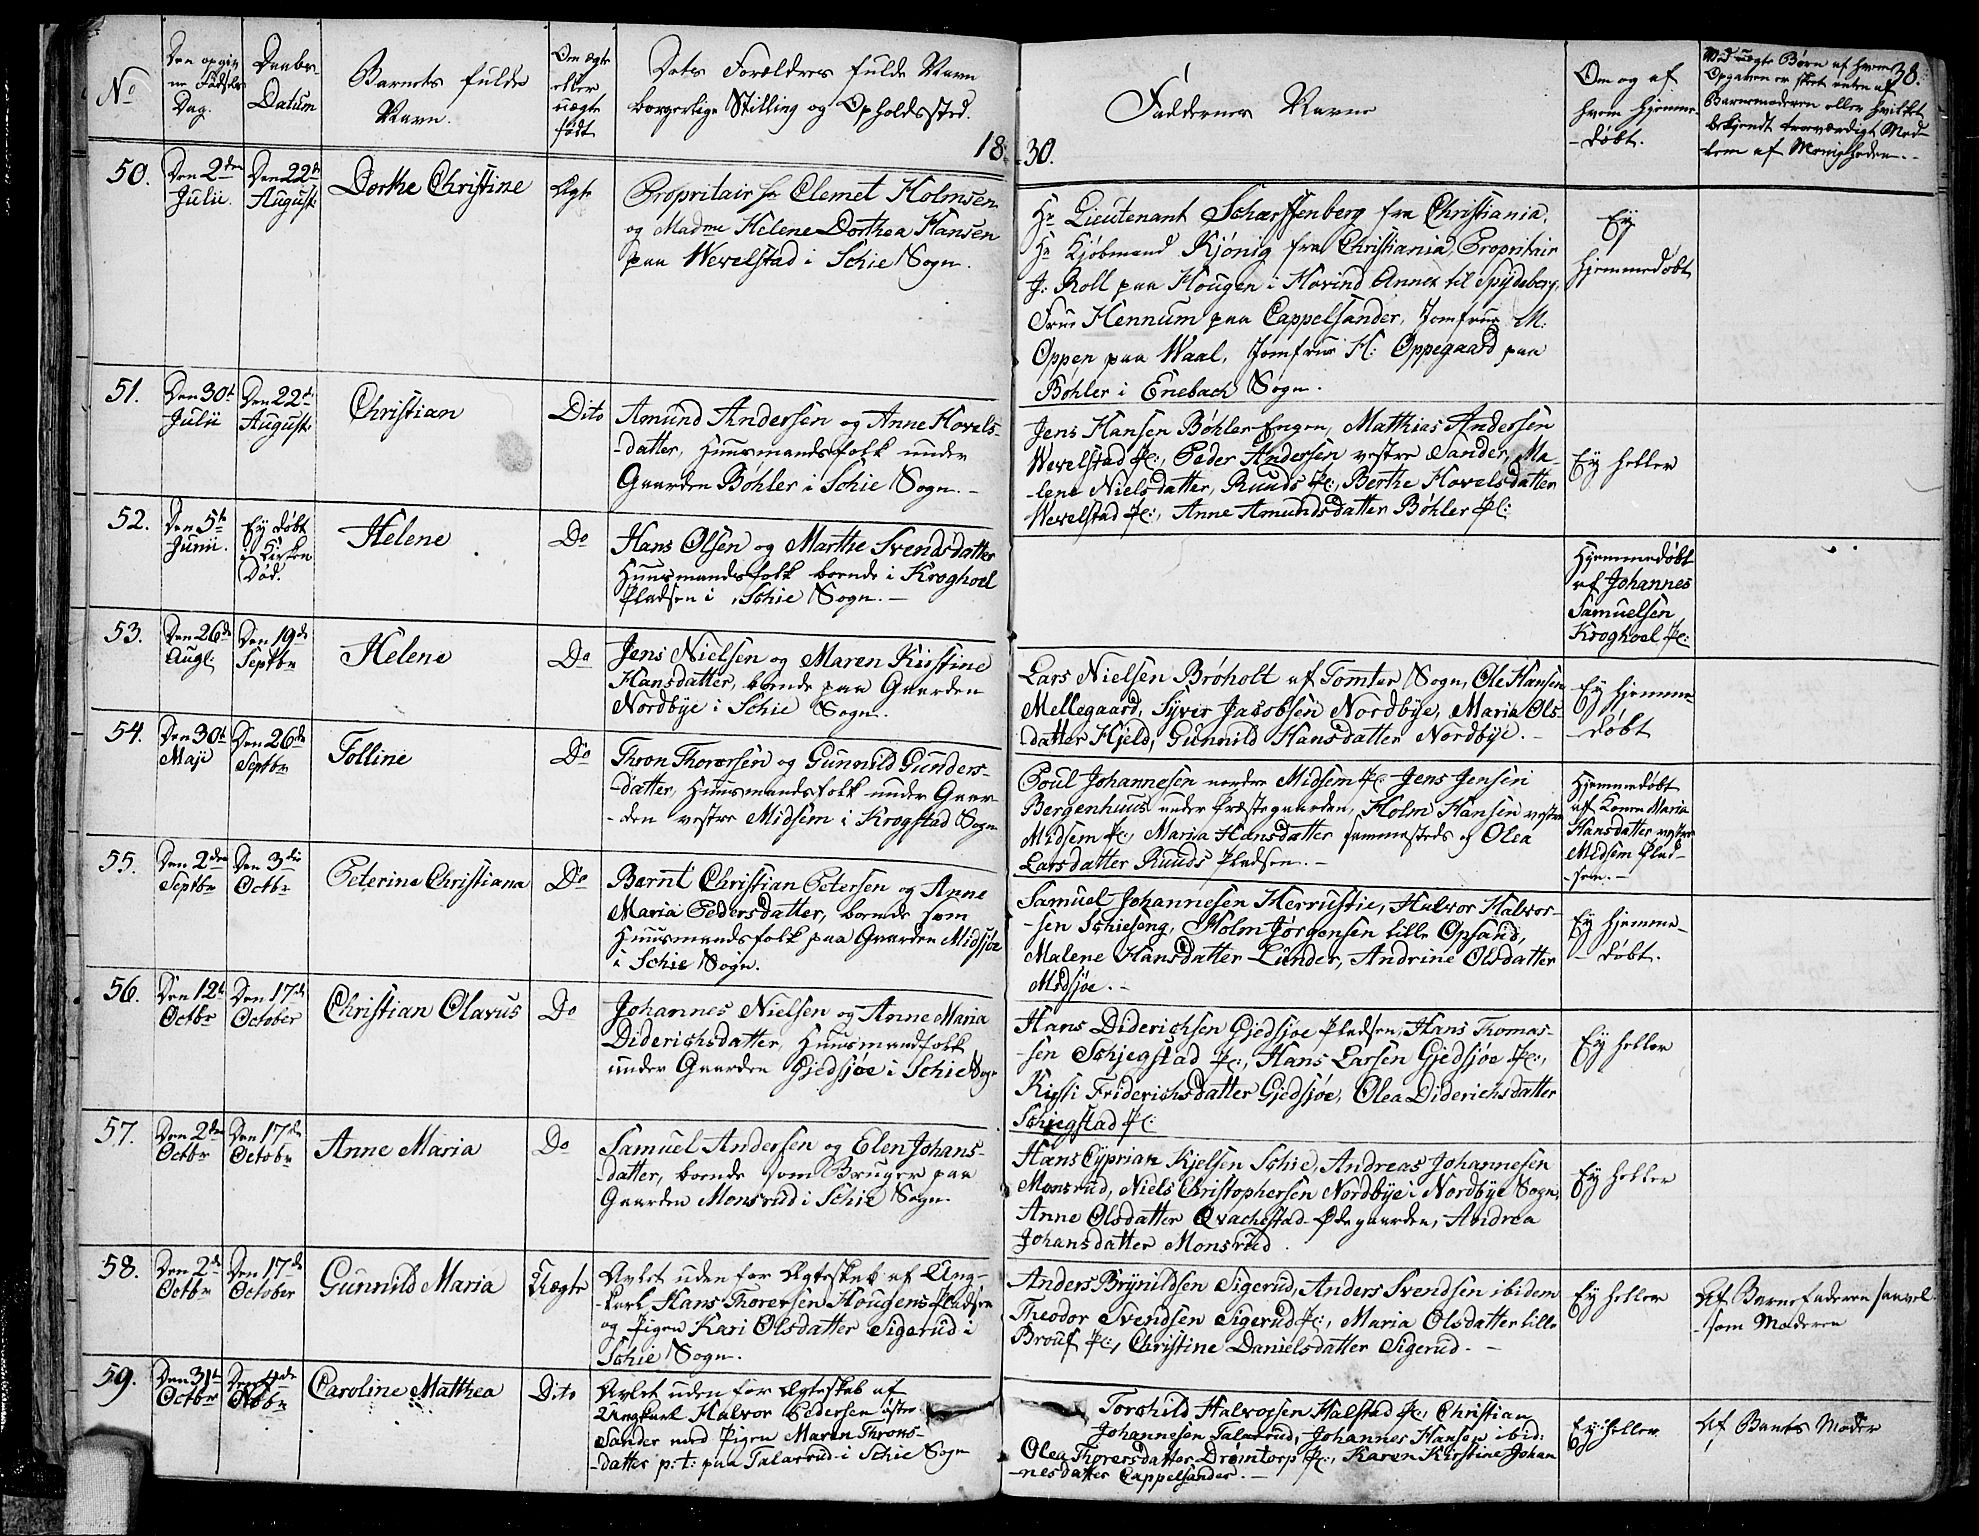 No
Den opgiv
ne Fødsels
Dag.
Daabs
Datum
Barnets fulde
Navn.
Om ægte
eller
uægte
født
Dets Forældres fulde Navn
borgerlige Stilling og Opholdssted.
18
30.
Faddernes Navne
Om og af
hvem hjemme
-døbt.
38.
Ved uægte Børn af hvem
Opgaven er skeet enten af
Barnemoderen eller hvilket
bekjendt troværdigt Med-
-lem af Menigheden.
50.
Den 2den
Julii.
Den 22de
August
Dorthe Christine
Ægte
Propritair Hr Clemet Holmsen
og Madme Helene Dorthea Hansen
paa Wevelstad i Schie Sogn.
Hr Lieutenant Scharffenberg fra Christiania,
Hr Kjøbmand Kjønig fra Christiania, Propritair
J: Roll paa Hougen i Hovind Annex til Spydeberg,
Frue Hennum paa Cappelsander, Jomfrue M:
Oppen paa Waal, Jomfrue H: Oppegaard paa
Bøhler i Enebach Sogn.
Ey
hjemmedøbt
51.
Den 30te
Julii
Den 22de
August
Christian
Dito
Amund Andersen og Anne Hovels-
-datter, Huusmandsfolk under
Gaarden Bøhler i Schie Sogn.
Jens Hansen Bøhler-Engen, Mathias Andersen
Wevelstad Pl:, Peder Andersen vestre Sander, Ma-
-lene Nielsdatter, Ruuds Pl:, Berthe Hovelsdatter
Wevelstad Pl:, Anne Amundsdatter Bøhler Pl:
Ey heller
52.
Den 5te
Junii.
Ey døbt
i Kirken
Død.
Helene
Do
Hans Olsen og Marthe Svendsdatter
Huusmandsfolk boende i Kroghoel
Pladsen i Schie Sogn.
Hjemmedøbt
af Johannes
Samuelsen
Kroghoel Pl:
53.
Den 26de
Augt.
Den 19de
Septbr
Helene
Do
Jens Nielsen og Maren Kirstine
Hansdatter, boende paa Gaarden
Nordbye i Schie Sogn.
Lars Nielsen Brøholt af Tomter Sogn, Ole Hansen
Mellegaard, Syver Jacobsen Nordbye, Maria Ols-
datter Hjeld, Gunnild Hansdatter Nordbye.
Ey hjemme
-døbt
54.
Den 30te
Maji
Den 26de
Septbr
Tolline
Do
Thron Thorersen og Gunnild Gunders-
-datter, Huusmandsfolk under Gaar-
-den vestre Midsem i Krogstad Sogn
Poul Johannesen nordre Midsem Pl: Jens Jensen
Bergenhuus under Præstegaarden, Holm Hansen vestre
Midsem Pl:, Maria Hansdatter sammesteds og Olea
Larsdatter Ruuds Pladsen.
Hjemmedøbt
af Konen Maria
Hansdatter vestre
Midsem Plad-
-sen.
55.
Den 2den
Septbr
Den 3die
Octbr
Peterine Christiana
Do
Bernt Christian Petersen og Anne
Maria Pedersdatter, boende som
Huusmandsfolk paa Gaarden Midsjøe
i Schie Sogn.
Samuel Johannesen Herrustie, Halvor Halvor-
-sen Schieseng, Holm Jørgensen lille Opsand,
Malene Hansdatter Lunder, Andrine Olsdatter
Midsjøe.
Ey hjemme-
-døbt.
56.
Den 12te
Octbr
Den 17de
October
Christian Olavus
Do
Johannes Nielsen og Anne Maria
Diderichsdatter, Huusmandsfolk
under Gaarden Gjedsjøe i Schie Sogn
Hans Diderichsen Gjedsjøe Pladsen, Hans Thomas-
-sen Schjegstad Pl:, Hans Larsen Gjedsjøe Pl:,
Kirsti Friderichsdatter Gjedsjøe, Olea Diderichsdatter
Schjegstad Pl:
Ey heller
57.
Den 2den
Octbr
Den 17de
Octobr
Anne Maria
Do
Samuel Andersen og Elen Johans-
-datter, boende som Bruger paa
Gaarden Monsrud i Schie Sogn.
Hans Cyprian Kjelsen Schie, Andreas Johannesen
Monsrud, Niels Christophersen Nordbye i Nordbye Sogn,
Anne Olsdatter Qvachestad-Ødegaarden, Andrea
Johansdatter Monsrud.
Ey heller
58.
Den 2de
Octbr
Den 17de
October
Gunnild Maria
Uægte
Avlet uden for Ægteskab af Ung-
-karl Hans Thorersen Hougens Pladsen
og Pigen Kari Olsdatter Sigerud i
Schie Sogn.
Anders Brynildsen Sigerud, Anders Svendsen ibidem
Theodor Svendsen Sigerud Pl:, Maria Olsdatter lille
Brouf Pl:, Christine Danielsdatter Sigerud.
Ey heller
Af Barnefaderen saavel
-som Moderen
59.
Den 31te
Octbr
Den 4de
Novbr
Caroline Matthea
Dito
Avlet uden for Ægteskab af
Ungkarl Halvor Pedersen østre
Sander med Pigen Maren Throns-
-datter p:t: paa Talarrud i Schie Sogn
Torchild Halvorsen Halstad Pl:, Christian
Johannesen Talarrud, Johannes Hansen ibid:
Olea Thorersdatter Drømtorp Pl:, Karen Kirstine Johan
-nesdatter Cappelsander.
Ey heller
Af Barnets Moder